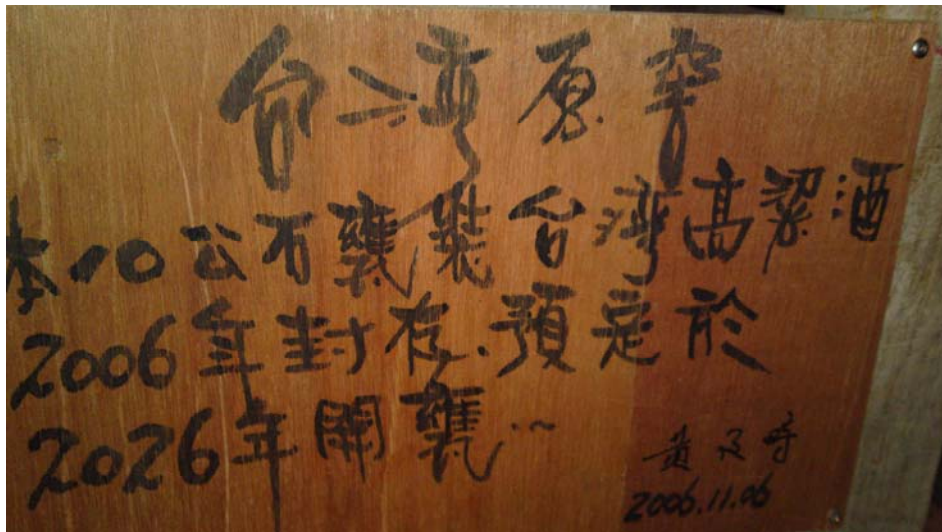 台灣原窖
本10公石甕裝台灣高粱酒
2006年封存.預定於
2026年開甕…
2006.11.06